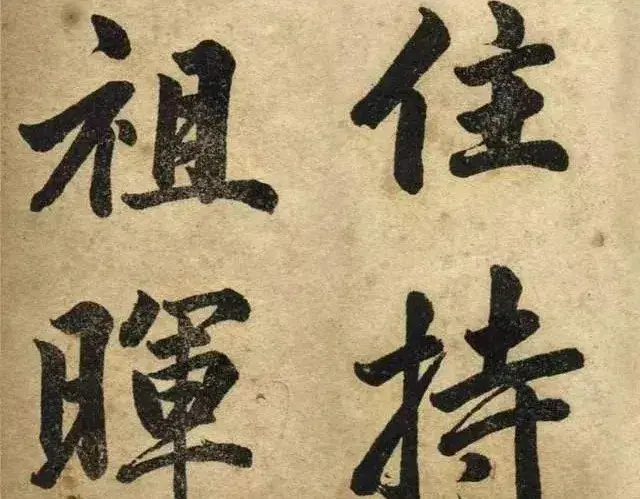 住持
祖暉